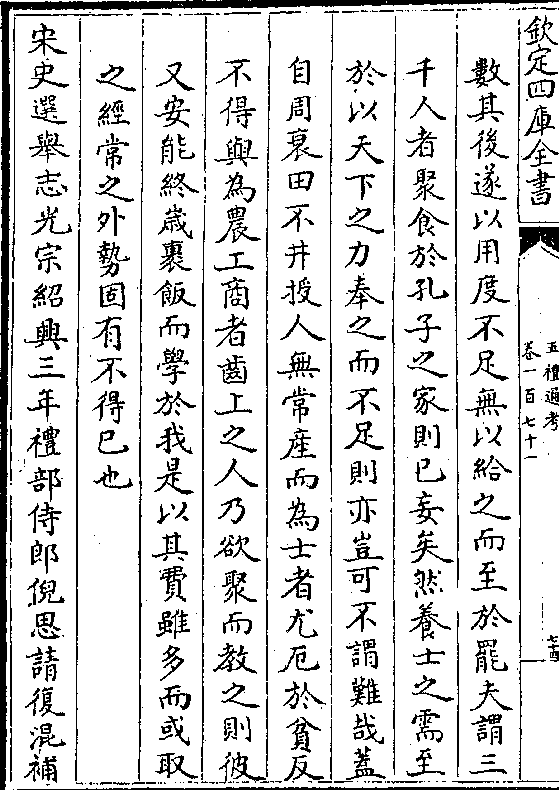 欽定四庫全書
五禮通考
卷一百七十一
七十四
數其後遂以用度不足無以給之而至於罷夫謂三
千人者聚食於孔子之家則已妄矣然養士之需至
於以天下之力奉之而不足則亦豈可不謂難哉蓋
自周衰田不井授人無常產而為士者尤厄於貧反
不得與為農工商者齒上之人乃欲聚而教之則彼
又安能終歲裹飯而學於我是以其費雖多而或取
之經常之外勢固有不得已也
宋史選舉志光宗紹興三年禮部侍郎倪思請復混補